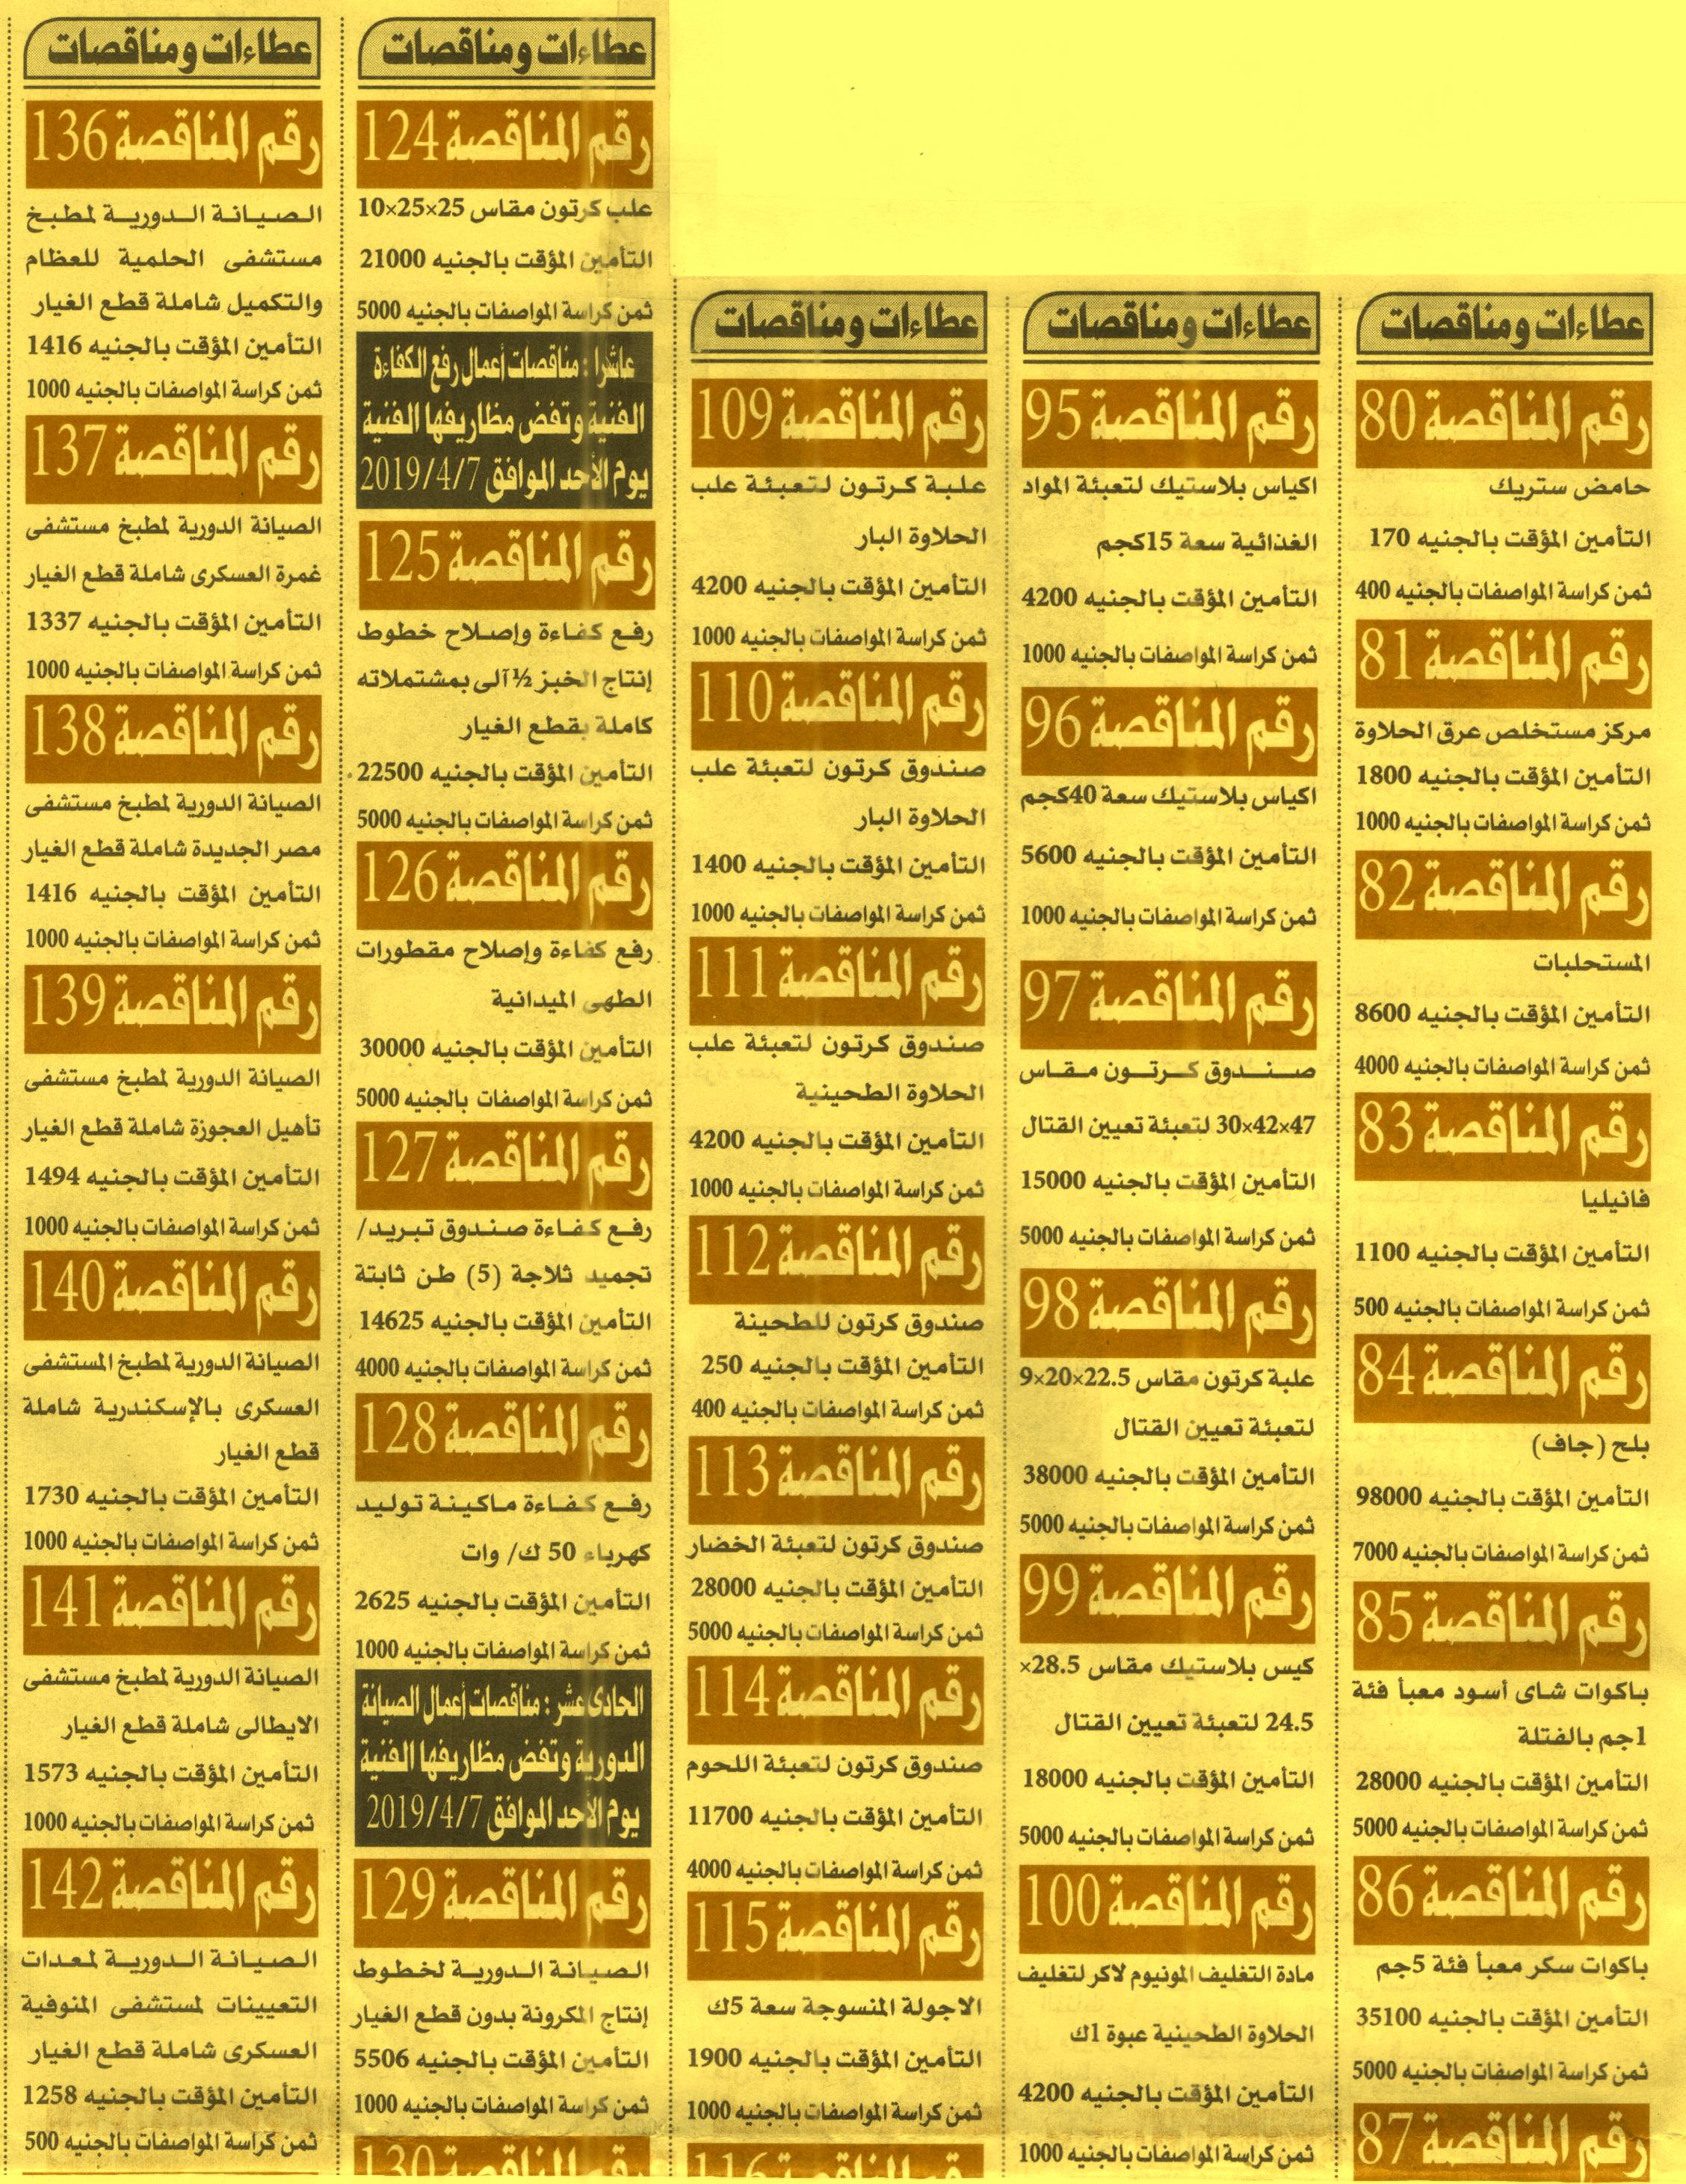 عطاءات ومناقصات
رقم المناقصة 80
حامض ستريك
التأمين المؤقت بالجنيه 170
ثمن كراسة المواصفات بالجنيه 400
رقم المناقصة 81
مركز مستخلص عرق الحلاوة
التأمين المؤقت بالجنيه 1800
ثمن كراسة المواصفات بالجنيه 1000
رقم المناقصة 82
المستحلبات
التأمين المؤقت بالجنيه 8600
ثمن كراسة المواصفات بالجنيه 4000
رقم المناقصة 83
فانيليا
التأمين المؤقت بالجنيه 1100
ثمن كراسة المواصفات بالجنيه 500
رقم المناقصة 84
بلح (جاف)
التأمين المؤقت بالجنيه 98000
ثمن كراسة المواصفات بالجنيه 7000
رقم المناقصة 85
باكوات شاى أسود معبأ فئة
1جم بالفتلة
التأمين المؤقت بالجنيه 28000
ثمن كراسة المواصفات بالجنيه 5000
رقم المناقصة 86
باكوات سكر معبأ فئة 5جم
التأمين المؤقت بالجنيه 35100
ثمن كراسة المواصفات بالجنيه 5000
رقم المناقصة 87
عطاءات ومناقصات
رقم المناقصة 95
اكياس بلاستيك لتعبئة المواد
الغذائية سعة 15كجم
التأمين المؤقت بالجنيه 4200
ثمن كراسة المواصفات بالجنيه 1000
رقم المناقصة 96
اكياس بلاستيك سعة 40كجم
التأمين المؤقت بالجنيه 5600
ثمن كراسة المواصفات بالجنيه 1000
رقم المناقصة 97
صندوق كرتون مقاس
47×42×30 لتعبئة تعيين القتال
التأمين المؤقت بالجنيه 15000
ثمن كراسة المواصفات بالجنيه 5000
رقم المناقصة 98
علبة كرتون مقاس 22.5×20×9
لتعبئة تعيين القتال
التأمين المؤقت بالجنيه 38000
ثمن كراسة المواصفات بالجنيه 5000
رقم المناقصة 99
كيس بلاستيك مقاس 28.5×
24.5 لتعبئة تعيين القتال
التأمين المؤقت بالجنيه 18000
ثمن كراسة المواصفات بالجنيه 5000
رقم المناقصة 100
مادة التغليف المونيوم لاكر لتغليف
الحلاوة الطحينية عبوة 1ك
التأمين المؤقت بالجنيه 4200
ثمن كراسة المواصفات بالجنيه 1000
عطاءات ومناقصات
رقم المناقصة 109
علبة كرتون لتعبئة علب
الحلاوة البار
التأمين المؤقت بالجنيه 4200
ثمن كراسة المواصفات بالجنيه 1000
رقم المناقصة 110
صندوق كرتون لتعبئة علب
الحلاوة البار
التأمين المؤقت بالجنيه 1400
ثمن كراسة المواصفات بالجنيه 1000
رقم المناقصة 111
صندوق كرتون لتعبئة علب
الحلاوة الطحينية
التأمين المؤقت بالجنيه 4200
ثمن كراسة المواصفات بالجنيه 1000
رقم المناقصة 112
صندوق كرتون للطحينة
التأمين المؤقت بالجنيه 250
ثمن كراسة المواصفات بالجنيه 400
رقم المناقصة 113
صندوق كرتون لتعبئة الخضار
التأمين المؤقت بالجنيه 28000
ثمن كراسة المواصفات بالجنيه 5000
رقم المناقصة 114
صندوق كرتون لتعبئة اللحوم
التأمين المؤقت بالجنيه 11700
ثمن كراسة المواصفات بالجنيه 4000
رقم المناقصة 115
الاجولة المنسوجة سعة 5ك
التأمين المؤقت بالجنيه 1900
ثمن كراسة المواصفات بالجنيه 1000
رقم المناقصة 116
عطاءات ومناقصات
رقم المناقصة 124
علب كرتون مقاس 25×25×10
التأمين المؤقت بالجنيه 21000
ثمن كراسة المواصفات بالجنيه 5000
عاشرا : مناقصات أعمال رفع الكفاءة
الفنية وتفض مظاريفها الفنية
يوم الأحد الموافق 2019/4/7
رقم المناقصة 125
رفع كفاءة وإصلاح خطوط
إنتاج الخبز ½ آلى بمشتملاته
كاملة بقطع الغيار
التأمين المؤقت بالجنيه 22500
ثمن كراسة المواصفات بالجنيه 5000
رقم المناقصة 126
رفع كفاءة وإصلاح مقطورات
الطهى الميدانية
التأمين المؤقت بالجنيه 30000
ثمن كراسة المواصفات بالجنيه 5000
رقم المناقصة 127
رفع كفاءة صندوق تبريد/
تجميد ثلاجة (5) طن ثابتة
التأمين المؤقت بالجنيه 14625
ثمن كراسة المواصفات بالجنيه 4000
رقم المناقصة 128
رفع كفاءة ماكينة توليد
كهرباء 50 ك/ وات
التأمين المؤقت بالجنيه 2625
ثمن كراسة المواصفات بالجنيه 1000
الحادى عشر : مناقصات أعمال الصيانة
الدورية وتفض مظاريفها الفنية
يوم الأحد الموافق 2019/4/7
رقم المناقصة 129
الصيانة الدورية لخطوط
إنتاج المكرونة بدون قطع الغيار
التأمين المؤقت بالجنيه 5506
ثمن كراسة المواصفات بالجنيه 1000
رقم المناقصة 130
عطاءات ومناقصات
رقم المناقصة 136
الصيانة الدورية لمطبخ
مستشفى الحلمية للعظام
والتكميل شاملة قطع الغيار
التأمين المؤقت بالجنيه 1416
ثمن كراسة المواصفات بالجنيه 1000
رقم المناقصة 137
الصيانة الدورية لمطبخ مستشفى
غمرة العسكرى شاملة قطع الغيار
التأمين المؤقت بالجنيه 1337
ثمن كراسة المواصفات بالجنيه 1000
رقم المناقصة 138
الصيانة الدورية لمطبخ مستشفى
مصر الجديدة شاملة قطع الغيار
التأمين المؤقت بالجنيه 1416
ثمن كراسة المواصفات بالجنيه 1000
رقم المناقصة 139
الصيانة الدورية لمطبخ مستشفى
تأهيل العجوزة شاملة قطع الغيار
التأمين المؤقت بالجنيه 1494
ثمن كراسة المواصفات بالجنيه 1000
رقم المناقصة 140
الصيانة الدورية لمطبخ المستشفى
العسكرى بالإسكندرية شاملة
قطع الغيار
التأمين المؤقت بالجنيه 1730
ثمن كراسة المواصفات بالجنيه 1000
رقم المناقصة 141
الصيانة الدورية لمطبخ مستشفى
الايطالى شاملة قطع الغيار
التأمين المؤقت بالجنيه 1573
ثمن كراسة المواصفات بالجنيه 1000
رقم المناقصة 142
الصيانة الدورية لمعدات
التعيينات لمستشفى المنوفية
العسكرى شاملة قطع الغيار
التأمين المؤقت بالجنيه 1258
ثمن كراسة المواصفات بالجنيه 500